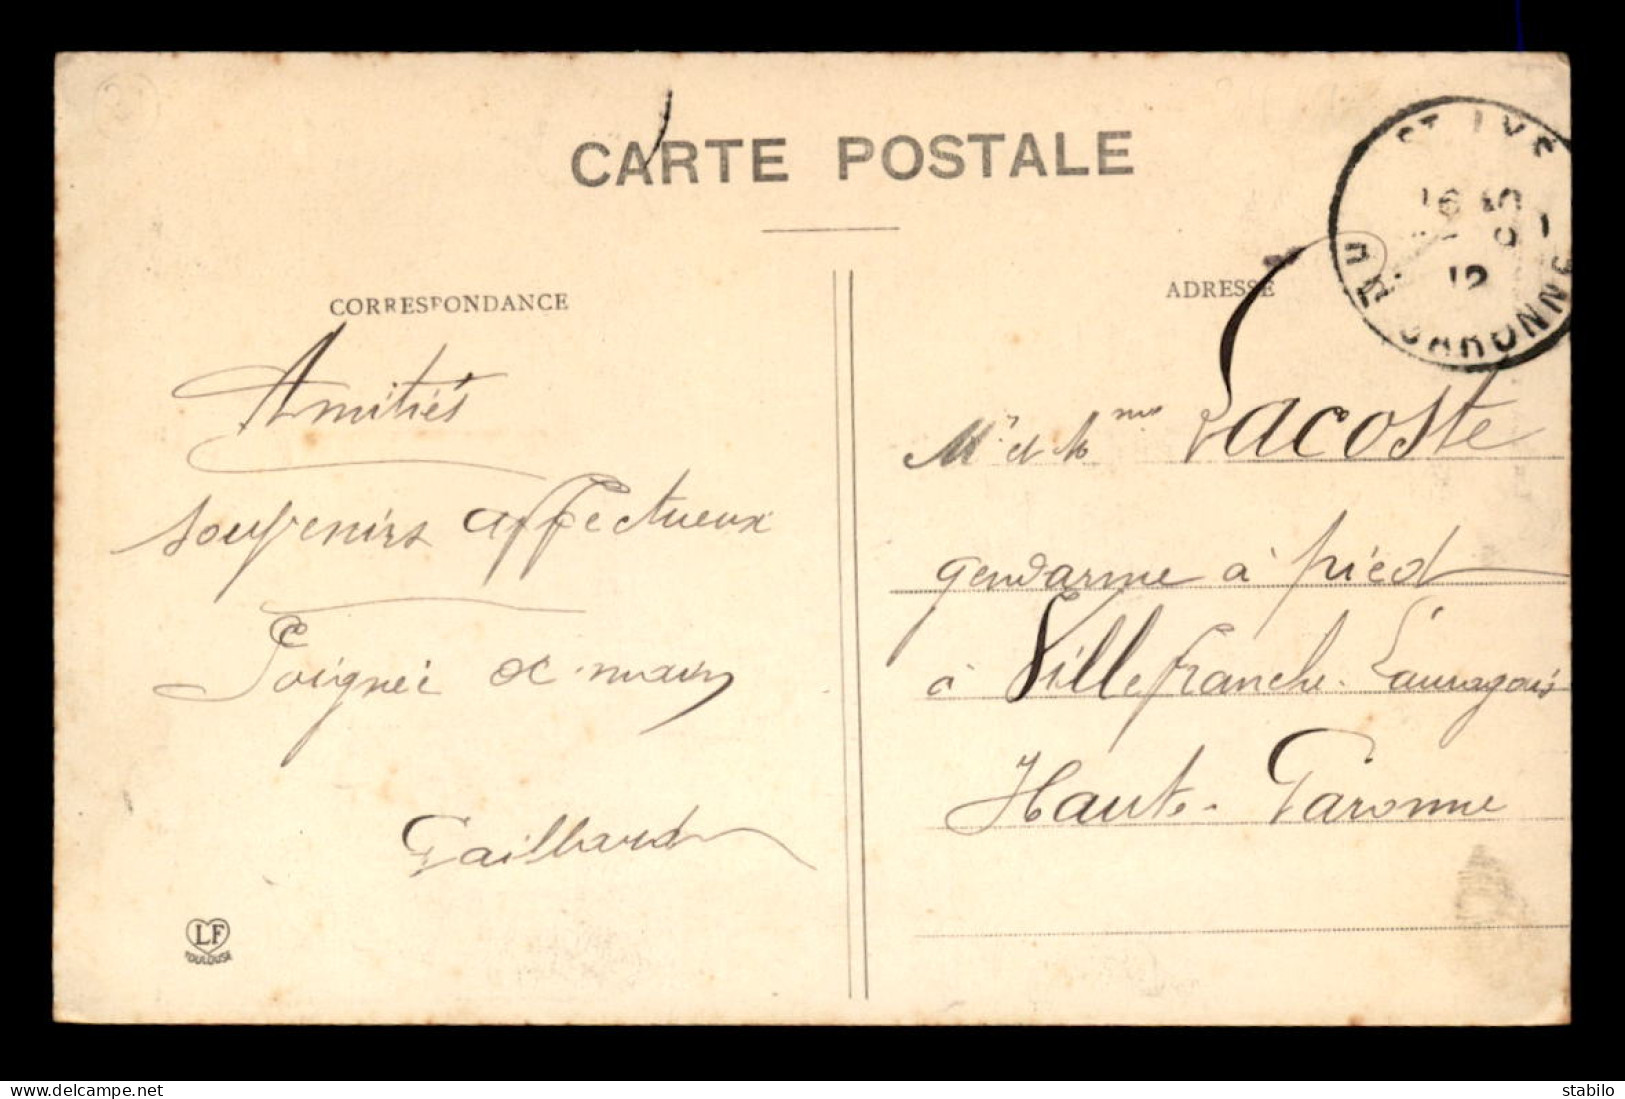 CARTE POSTALE
CORRESPONDANCE
Amitiés
souvenirs affectueux
Poignée de main
Gaillard
LF
TOULOUSE
ADRESSE
Mr et Mme Lacoste
gendarme à pied
à Villefranche-Lauragais
Haute-Garonne
ST LYS
GARONNE
delcampe.net
stabilo